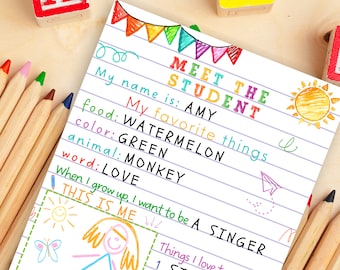 MEET THE
STUDENT
My name is: AMY
My favorite things
food: WATERMELON
color: GREEN
animal: MONKEY
word: LOVE
When I grow up, I want to be A SINGER
THIS IS ME
Things I love t